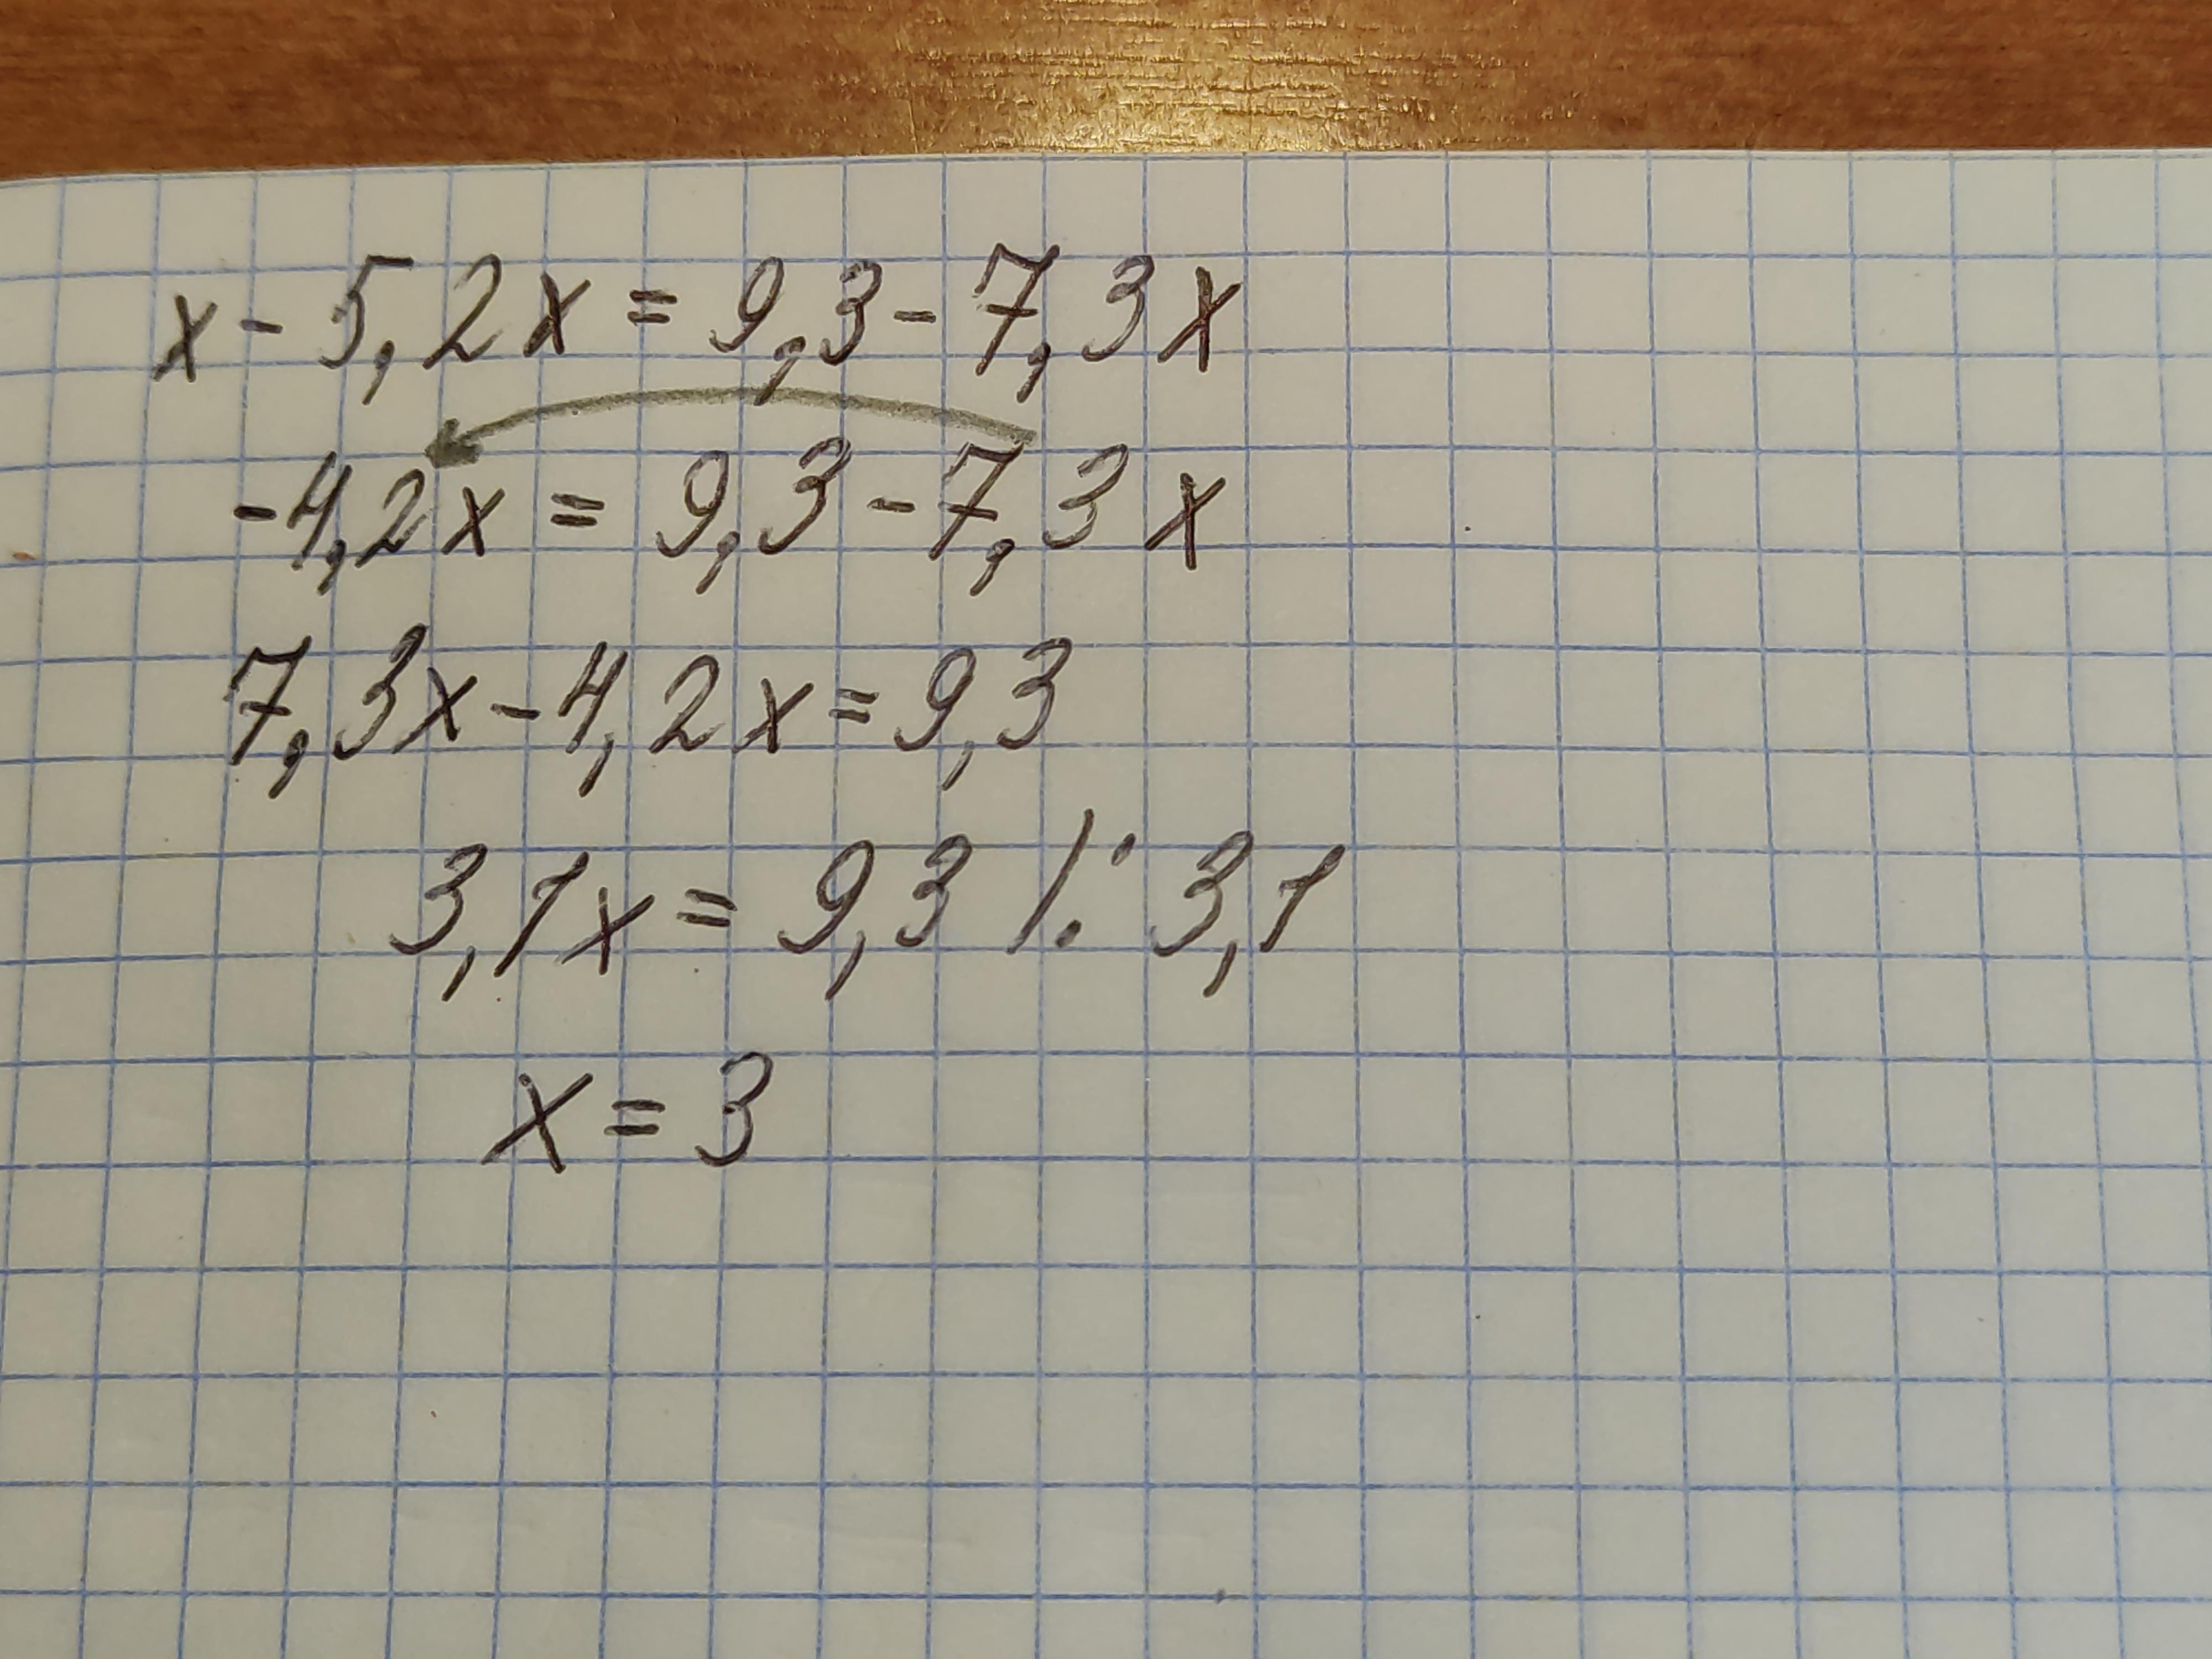 x - 5,2x = 9,3 - 7,3x
-4,2x = 9,3 - 7,3x
7,3x - 4,2x = 9,3
3,1x = 9,3 /: 3,1
x = 3